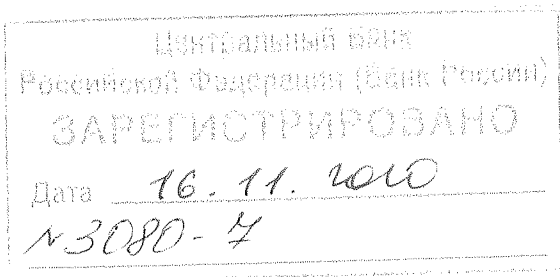 Центральный Банк
Российской Федерации (Банк России)
ЗАРЕГИСТРИРОВАНО
Дата 16.11.2010
№3080-7